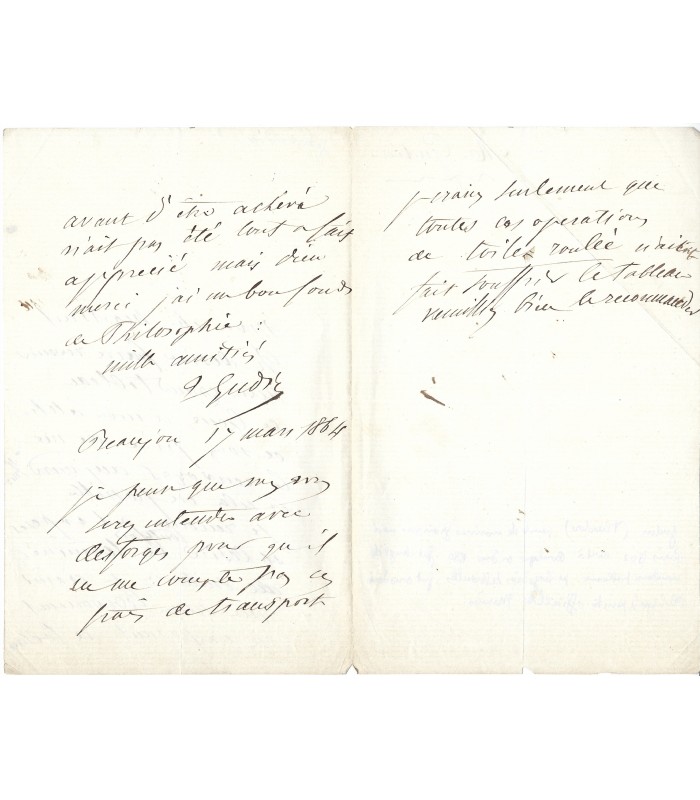 avant d'être achevé
n'ait pas été tout a fait
apprecié mais dieu
merci j'ai un bon fonds
de Philosophie :
mille amitiés
Gudin
Beaujon 17 mars 1864
je pense que
serez entendu avec
desforges pour qu'il
ne me compte pas ces
frais de transport
je crains seulement que
toutes ces operations
de toile roulée n'aient
fait souffrir le tableau
veuillez bien le recommander